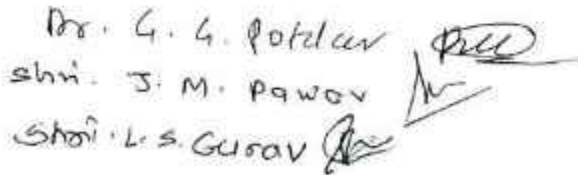 Dr. G. G. Potdar
Shri. J. M. Pawar
Shri. L. S. Gurav